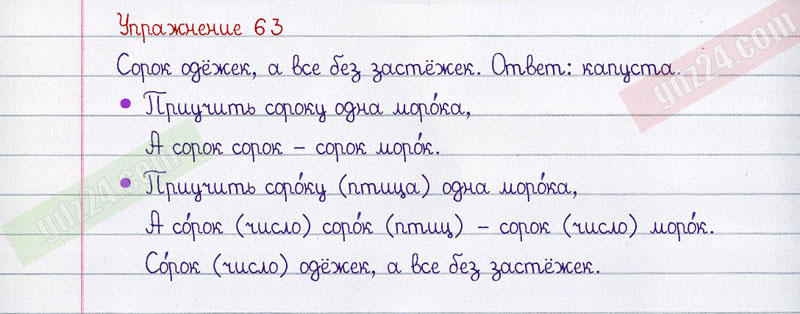 Упражнение 63
Сорок одёжек, а все без застёжек. Ответ: капуста.
• Приучить сороку одна моро́ка,
А сорок сорок – сорок моро́к.
• Приучить соро́ку (птица) одна моро́ка,
А со́рок (число) соро́к (птиц) – сорок (число) моро́к.
Со́рок (число) одёжек, а все без застёжек.
gdz24.com
gdz24.com